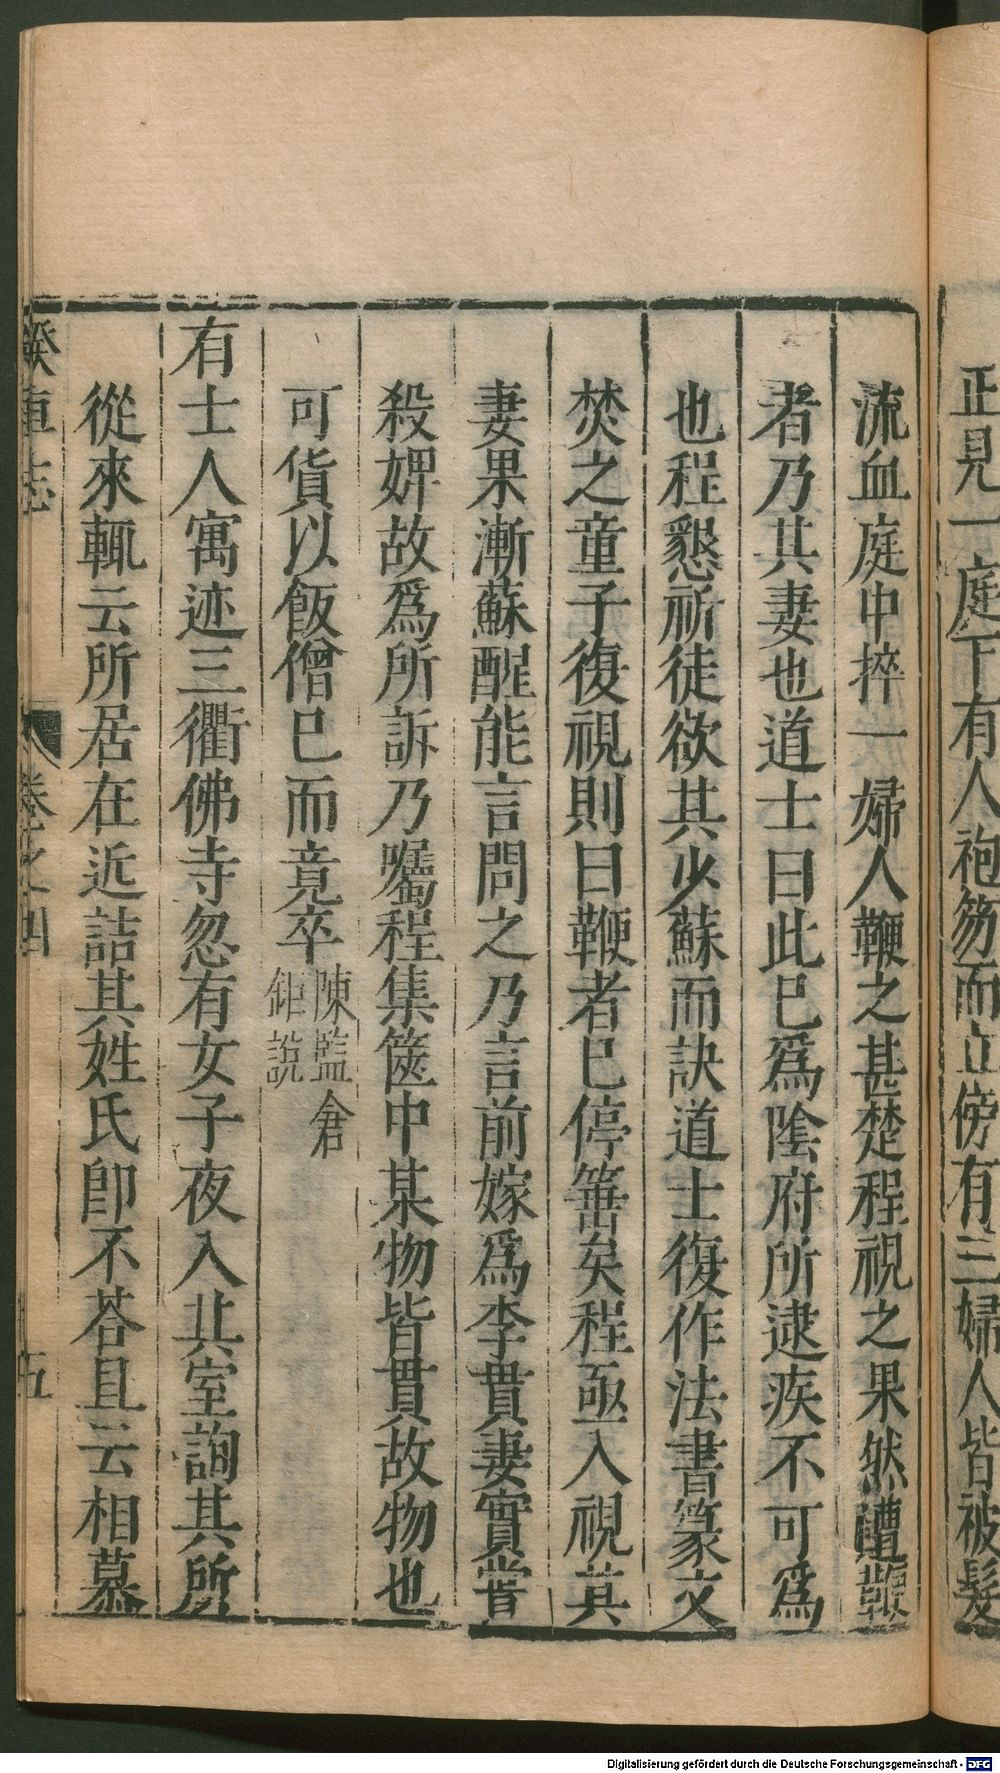 正見一庭下有人袍笏而立傍有三婦人皆被髮
流血庭中捽一婦人鞭之甚楚程視之果然遭鞭
者乃其妻也道士曰此已爲陰府所逮疾不可爲
也程懇祈徒欲其少蘇而訣道士復作法書篆文
焚之童子復視則曰鞭者已停箠矣程亟入視其
妻果漸蘇醒能言問之乃言前嫁爲李貫妻實嘗
殺婢故爲所訴乃囑程集篋中某物皆貫故物也
可貨以飯僧已而竟卒陳監倉鉅說
有士人寓迹三衢佛寺忽有女子夜入其室詢其所
從來輒云所居在近詰其姓氏卽不荅且云相慕
睽車志 卷之四 五
Digitalisierung gefördert durch die Deutsche Forschungsgemeinschaft - DFG